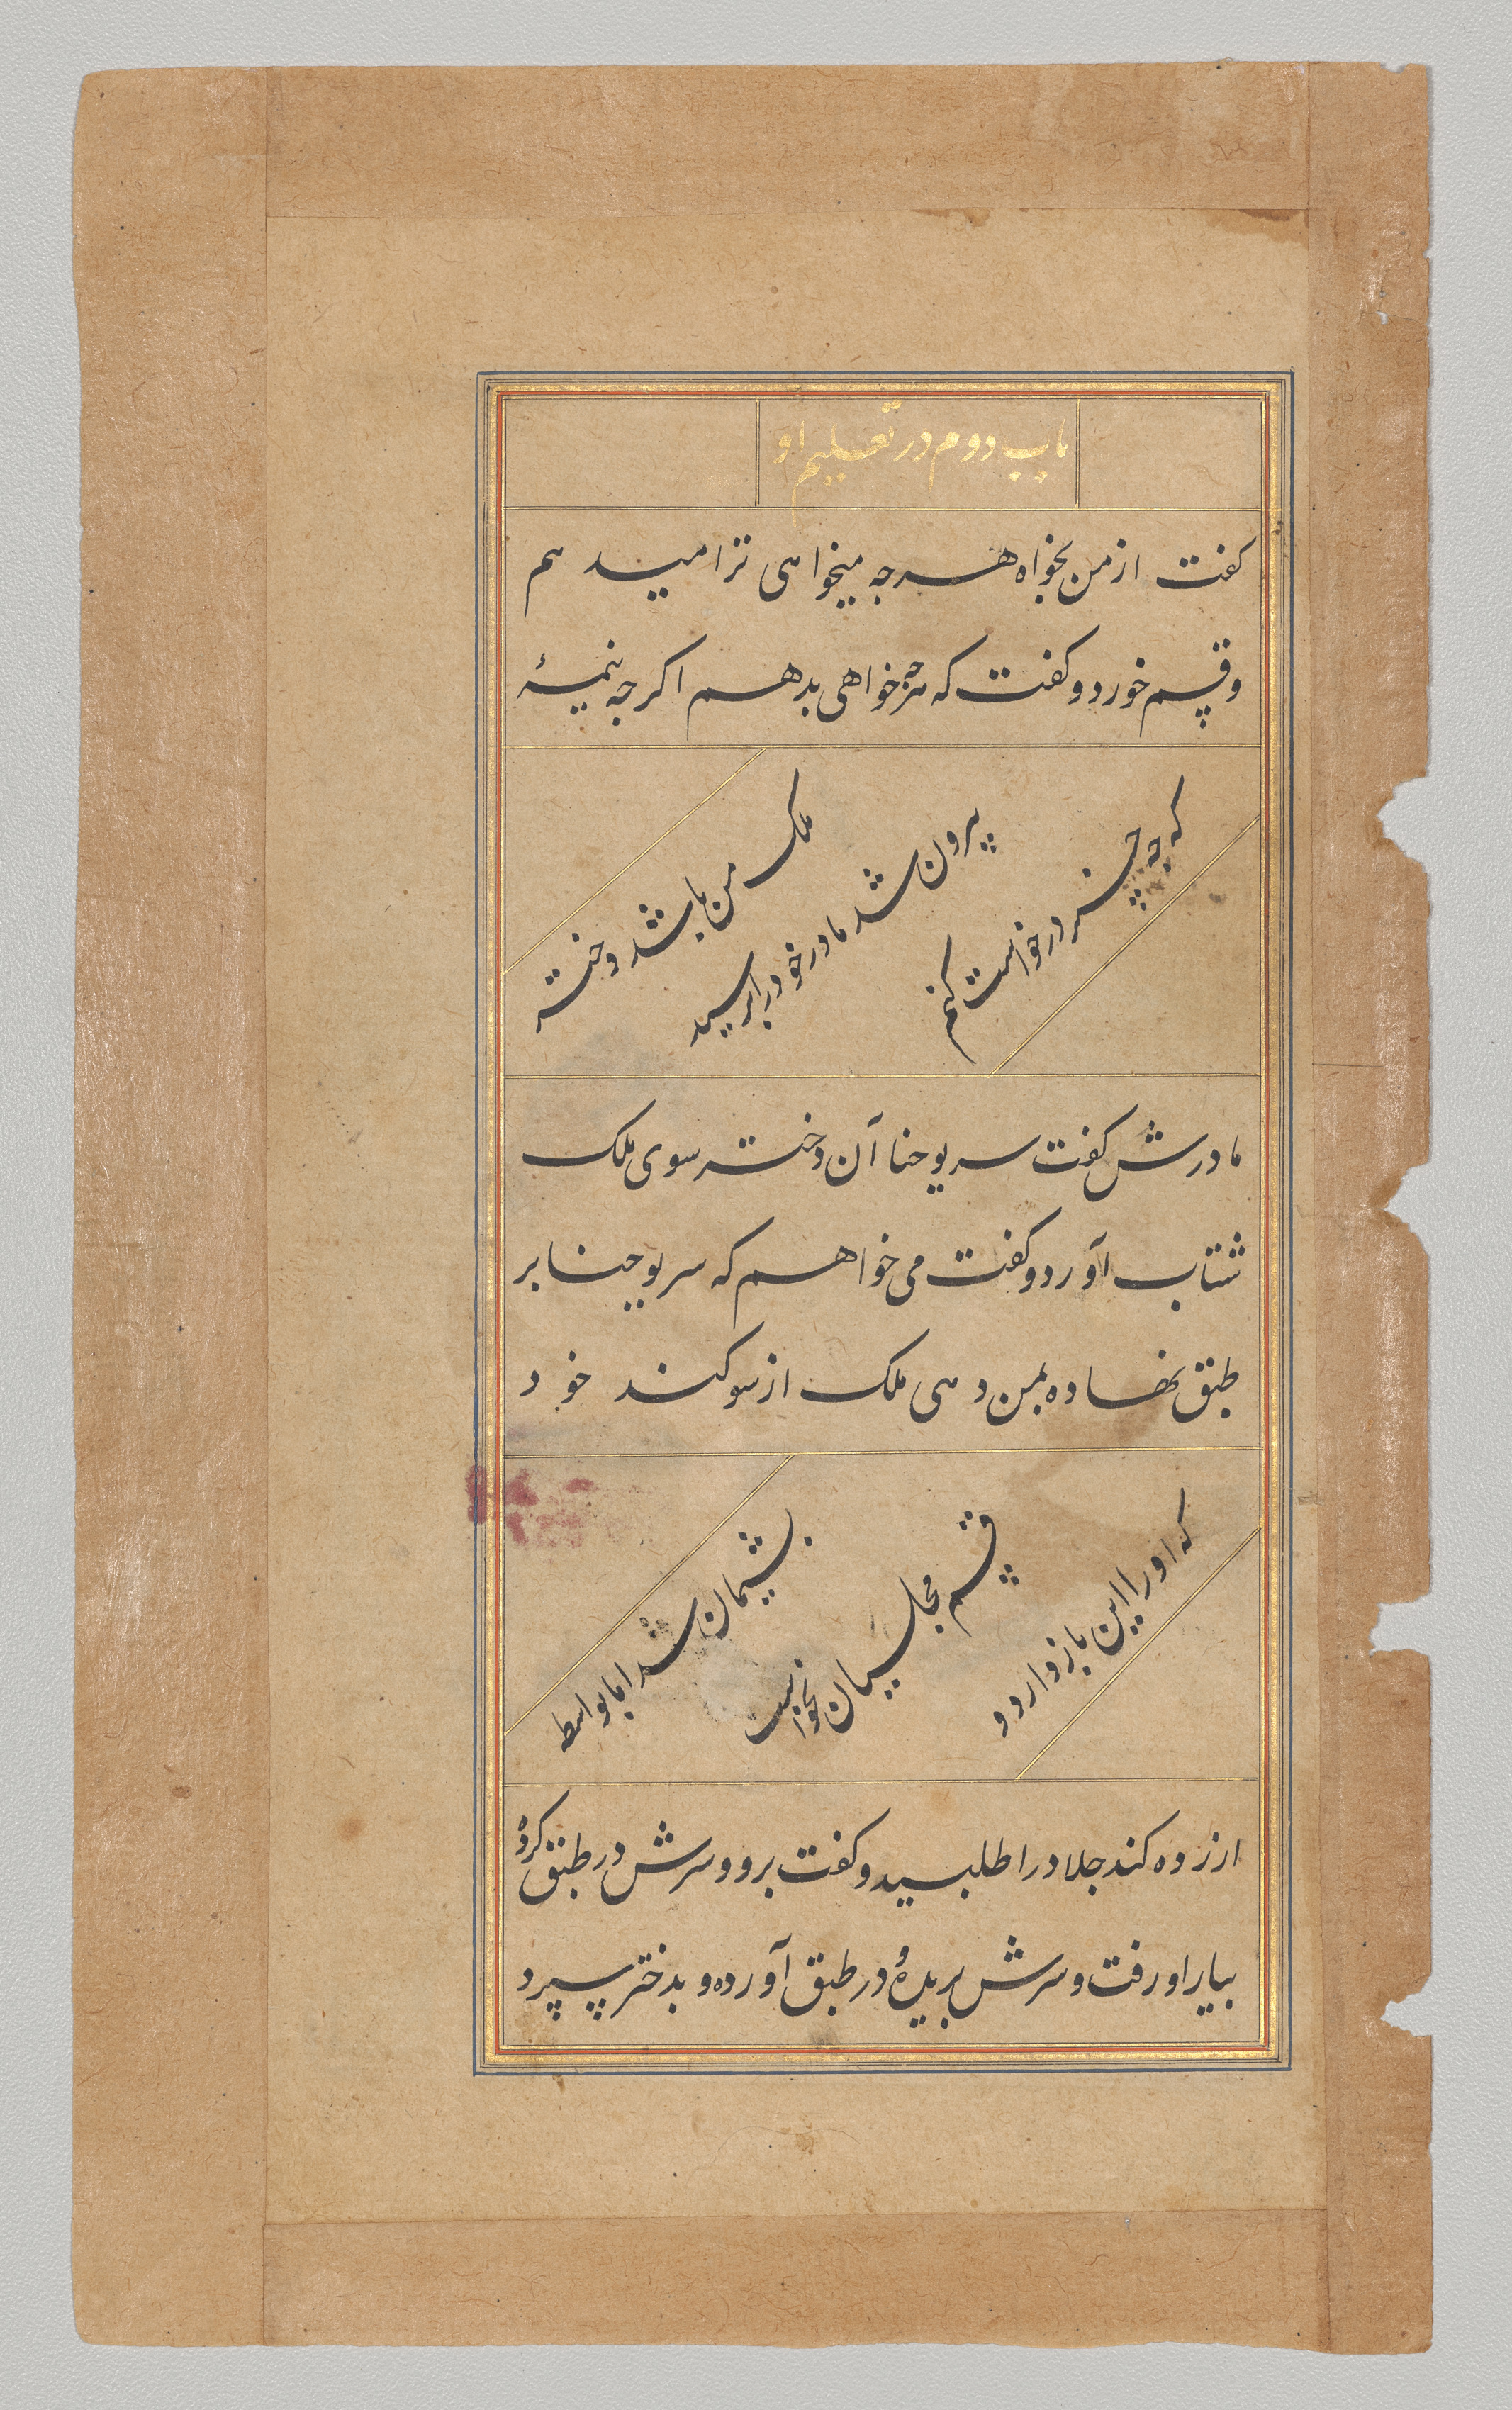 باب دوم در تعلیم او
کفت از من بخواه هرجه میخواهی ترا میدهم
و قسم خورد و کفت که هرجه خواهی بدهم اکرجه نیمهٔ
ملک من باشد دختر
بیرون شد مادر خود را برسید
که جه جیز درخواست کنم
مادرش کفت سر یوحنا آن دختر سوی ملک
شتاب آورد و کفت می خواهم که سر یوحنا بر
طبق نهاده بمن دهی ملک از سوکند خود
بشیمان شد اما بواسطه
قسم مجلسیان نخواست
که او را این باز دارد و
ازرده کند جلاد را طلبید و کفت برو و سرش در طبق کرده
بیار او رفت و سرش بریدهٔ در طبق آورده و بدختر سپرد